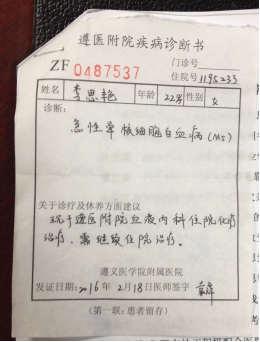 遵医附院疾病诊断书
门诊号
ZF 0487537 住院号 1195233
姓名 李思艳 年龄 22岁 性别 女
诊断:
急性单核细胞白血病(M5)
关于诊疗及休养方面建议
现于遵医附院血液内科住院化疗
治疗,需继续住院治疗。
遵义医学院附属医院
发证日期:2016年2月18日医师签字
(第一联:患者留存)